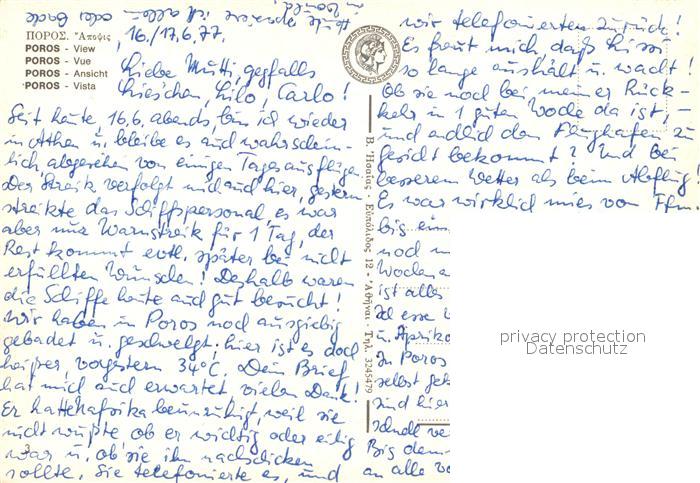 ΠΟΡΟΣ. Ἄποψις
POROS - View
POROS - Vue
POROS - Ansicht
POROS - Vista
Heute ist allen
16./17.6.77.
Liebe Mutti, ggfalls
Lieschen, Lilo, Carlo!
Seit heute 16.6. abends, bin ich wieder
in Athen u. bleibe es auch wahrschein-
lich abgesehen von einigen Tagesausflügen.
Der Streik verfolgt mich auch hier, gestern
streikte das Schiffspersonal, es war
aber nur Warnstreik für 1 Tag, der
Rest kommt evtl. später bei nicht
erfüllten Wünschen! Deshalb waren
die Schiffe heute auch gut besucht!
Wir haben in Poros noch ausgiebig
gebadet u. geschwelgt; hier ist es doch
heißer, vorgestern 34°C. Dein Brief
hat mich auch erwartet vielen Dank!
Er hatte Kafrika beunruhigt, weil sie
nicht wußte ob er wichtig oder eilig
war u. ob sie ihn nachschicken
sollte. Sie telefonierte es, und
wir telefonierten zurück!
Es freut mich, daß Kissi
so lange aushält u. wacht!
Ob sie noch bei meiner Rück-
kehr in 1 guten Woche da ist, -
und endlich den Flughafen zu
Gesicht bekommt? Und bei
besserem Wetter als beim Abflug!
Es war wirklich mies von Ffm.
bis
noch
Wochen
ist alles
Ich esse
u. Apriko
In Poros
selbst
sind hier
schnell
Bis dem-
an alle
Β. Ἠσαΐας - Εὐπόλιδος 12 - Ἀθῆναι - Τηλ. 3245479
privacy protection
Datenschutz